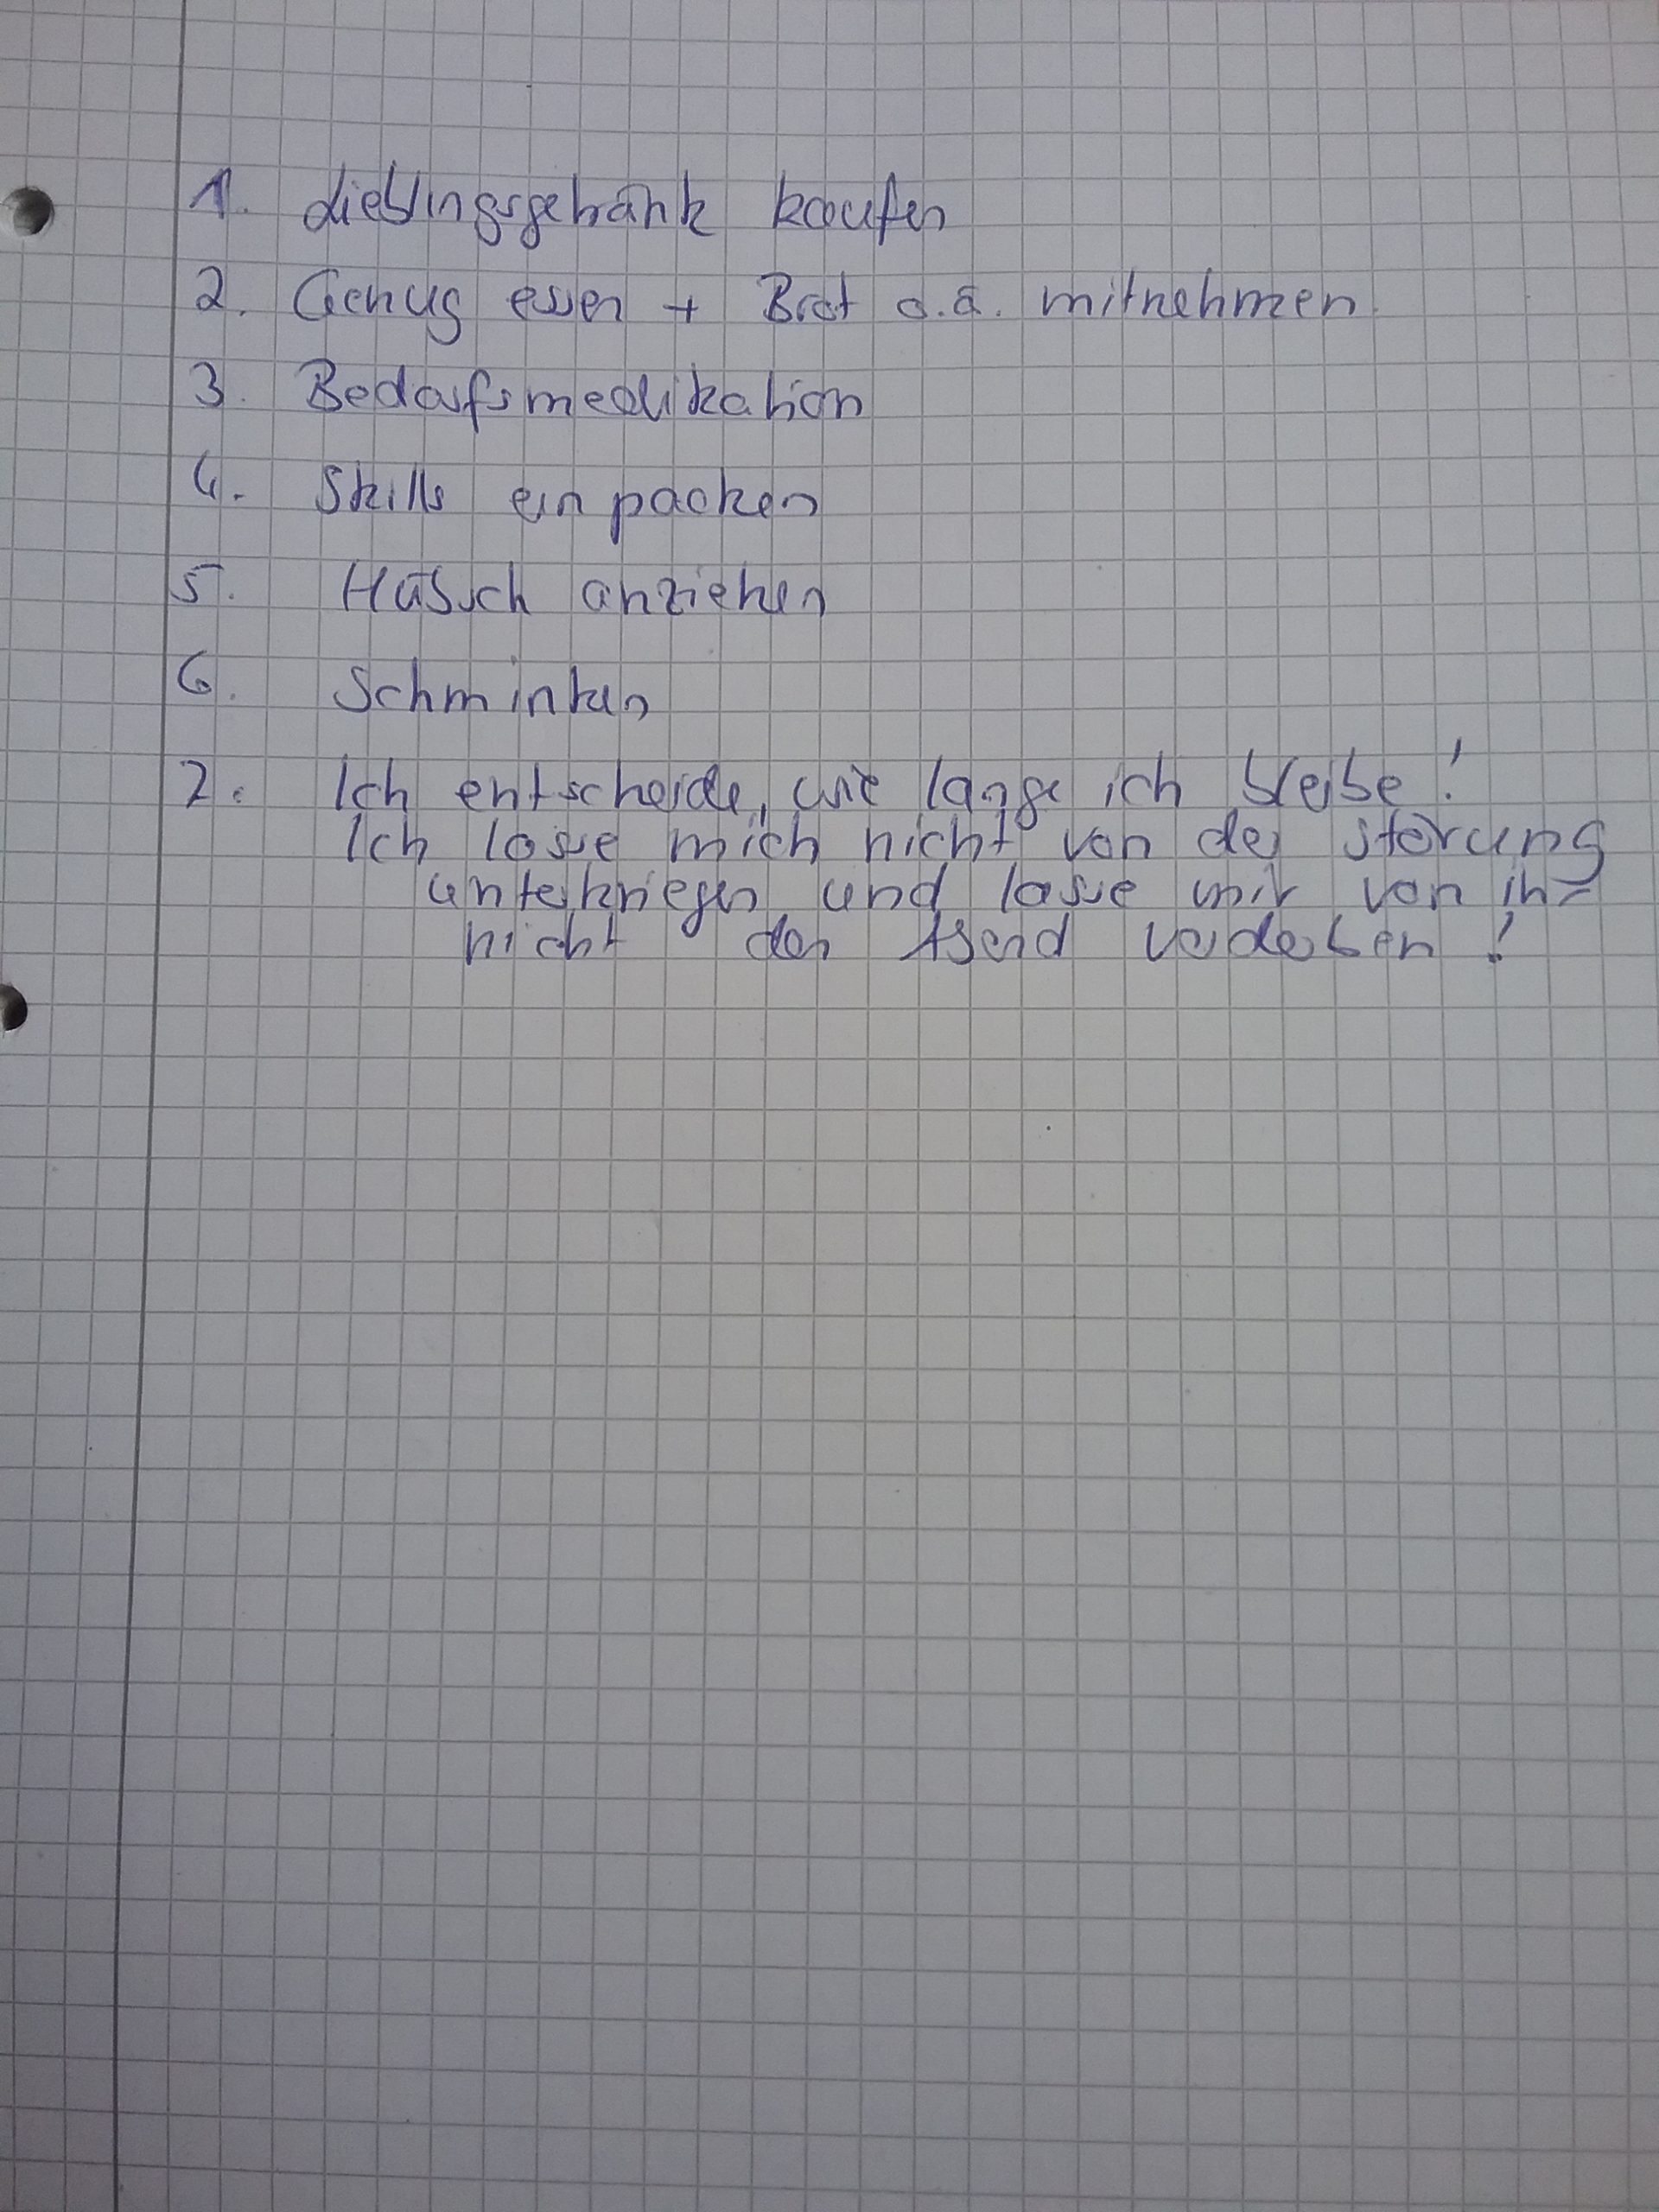 1. Lieblingsgetränk kaufen
2. Genug essen + Brot o.ä. mitnehmen
3. Bedarfsmedikation
4. Skills einpacken
5. Hübsch anziehen
6. Schminken
7. Ich entscheide, wie lange ich bleibe!
Ich lasse mich nicht von der Störung
unterkriegen und lasse mir von ihr
nicht den Abend verderben!